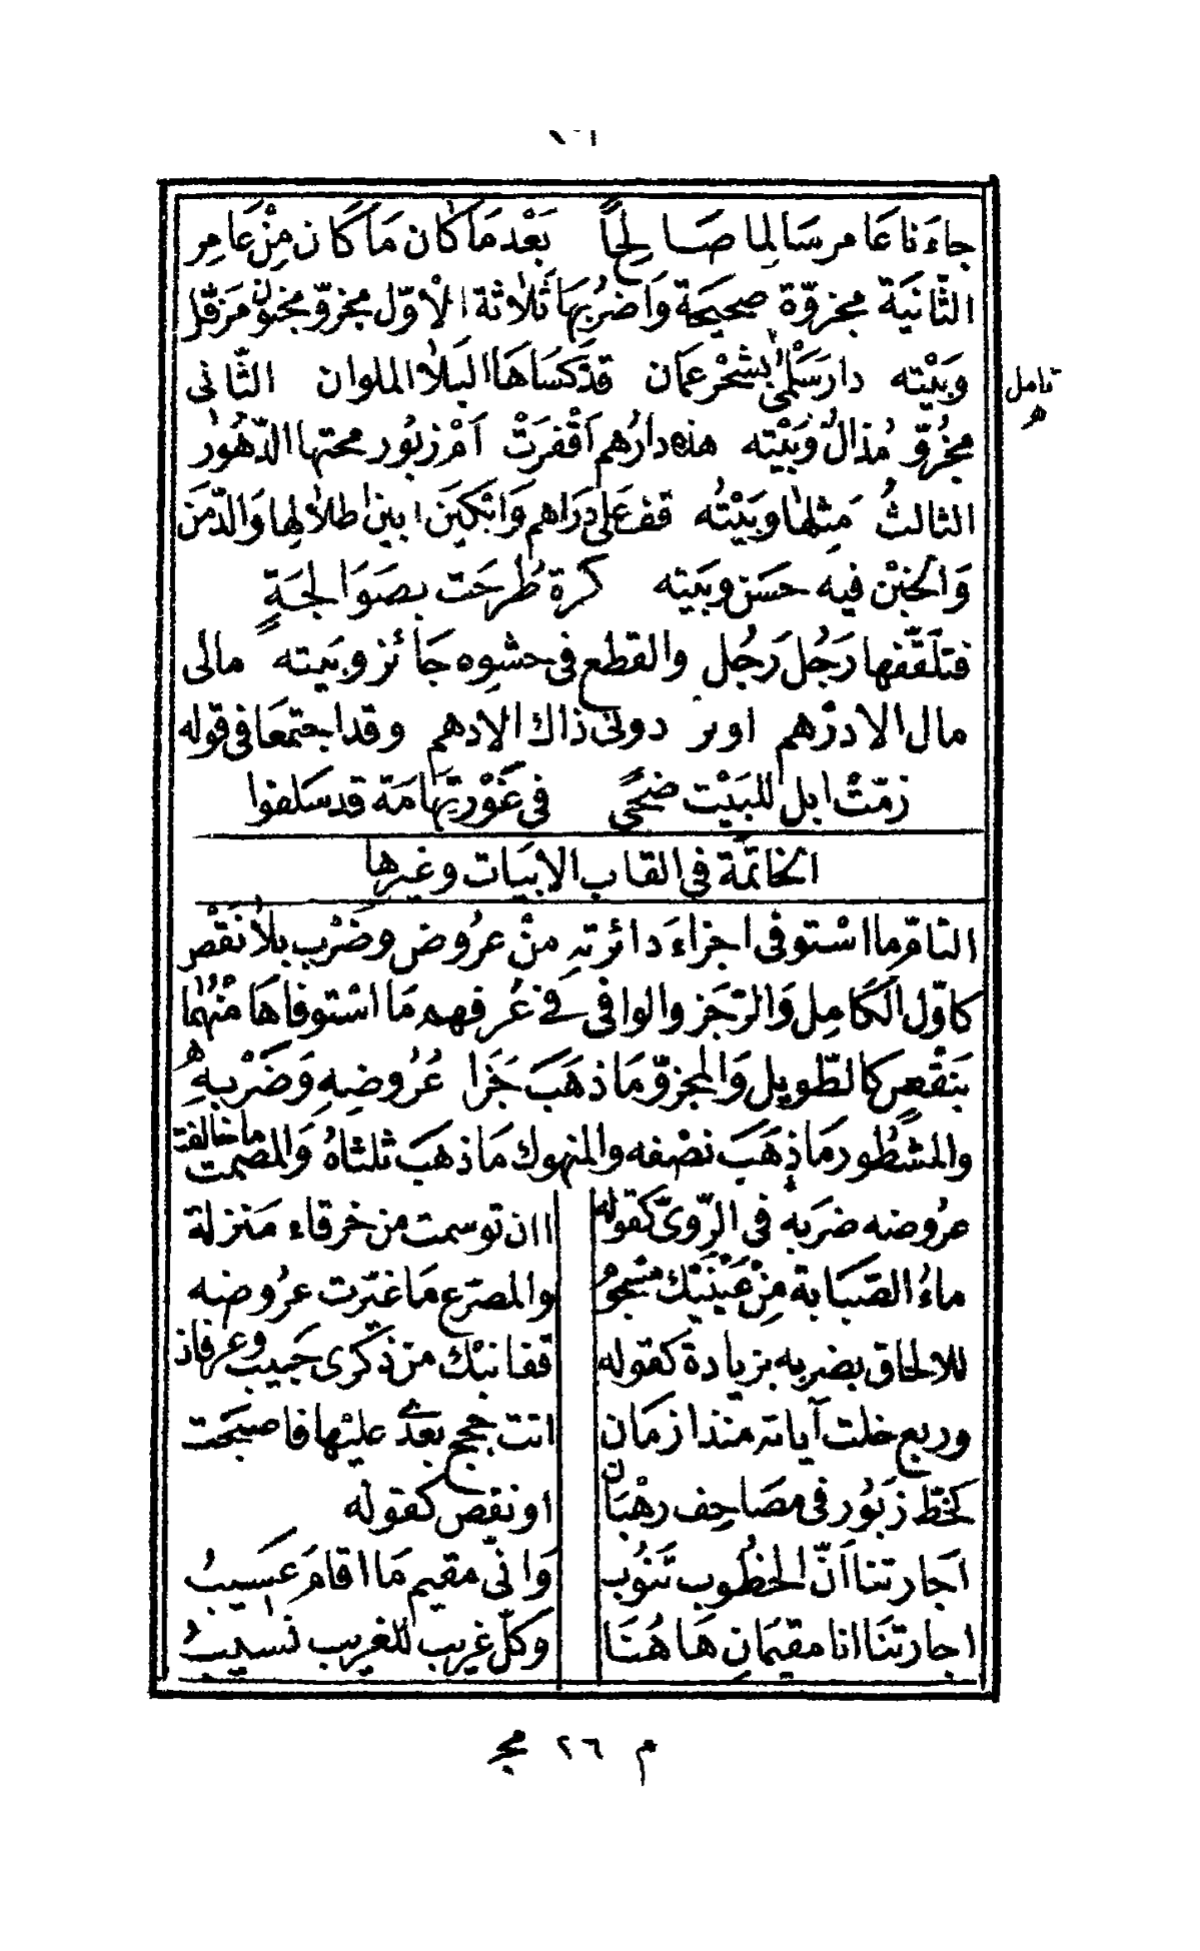 جاءَنا عَامر سَالما صَالِحاً بَعْدمَا كان مَا كَان مِنْ عَامِر
الثَّانيَة مجزوّة صحيحَة وَاضرُبهَا ثَلاثة الْاوّل مجزوّ مخبون مرَفّل
وَبَيْته دار سَلْمىٰ بشحْر عمَان قدْ كسَاهَا البلَا الملوان الثّانى
مجزُوّ مُذالٌ وَبَيْته هذه دارُهم اَقْفرَتْ اَمْ زبُور محتها الدّهُور
الثالثُ مَثلهَا وبَيْتُه قف عَلى دَراهم وَابْكينَ بين اطلالها وَالدّمَن
وَالخبْن فيه حسَن وبَيته كرة طُرحَت بصَوَالجَةٍ
فتلَقّفها رَجُل رَجُل والقطع فى حشوه جَائز وبَيته مالى
مال الا درْهم اوبر دونى ذاك الادهم وقد اجتمعَا فى قوله
زمّتْ ابل للبَيْت ضحىً فى غَوْر تِهَامَة قد سَلكوا
الخاتمَة فى القاب الابَيات وغيرها
التامّ ما اسْتوفى اجزاءَ دائرتهِ منْ عرُوض وضَرْب بلا نَقْص
كاوّل الكَامِل وَالرّجَز والوافى فى عُرفهم مَا اسْتوفاهَا منْهُمَا
بنَقْص كالطّويل وَالمجزوّ مَا ذهَبَ جَزا عُرُوضِهِ وَضَرْبهِ
والمشطُور مَا ذهَبَ نصْفه والمنهوك مَا ذهَبَ ثلثاهُ وَالمصْمت ما خالفت
عرُوضه ضرَبه فى الرّوىّ كقوله اان توسمت من خرقاء مَنزلة
ماءُ الصّبَابة مِنْ عَيْنَيْك مسْجُومُ والمصرّع مَا غيّرت عرُوضه
للالحاق بضربه بزيادة كقوله قفا نبْك من ذكرى حَبيب وعرفان
وربع خلت آياته منذ ازمَان اتت حجج بعْدى عليْها فاصبحَت
كخطّ زبُور فى مصَاحِف رهْبَان او نقص كقوله
اَجارتنا اَنّ الخطُوب تَنُوب وَانّى مقيم مَا اقامَ عَسيبُ
اجارتنَا انا مقيمَانِ هَا هُنَا وكلّ غريب للغريب نسيبُ
تامل
م ٢٦ مج